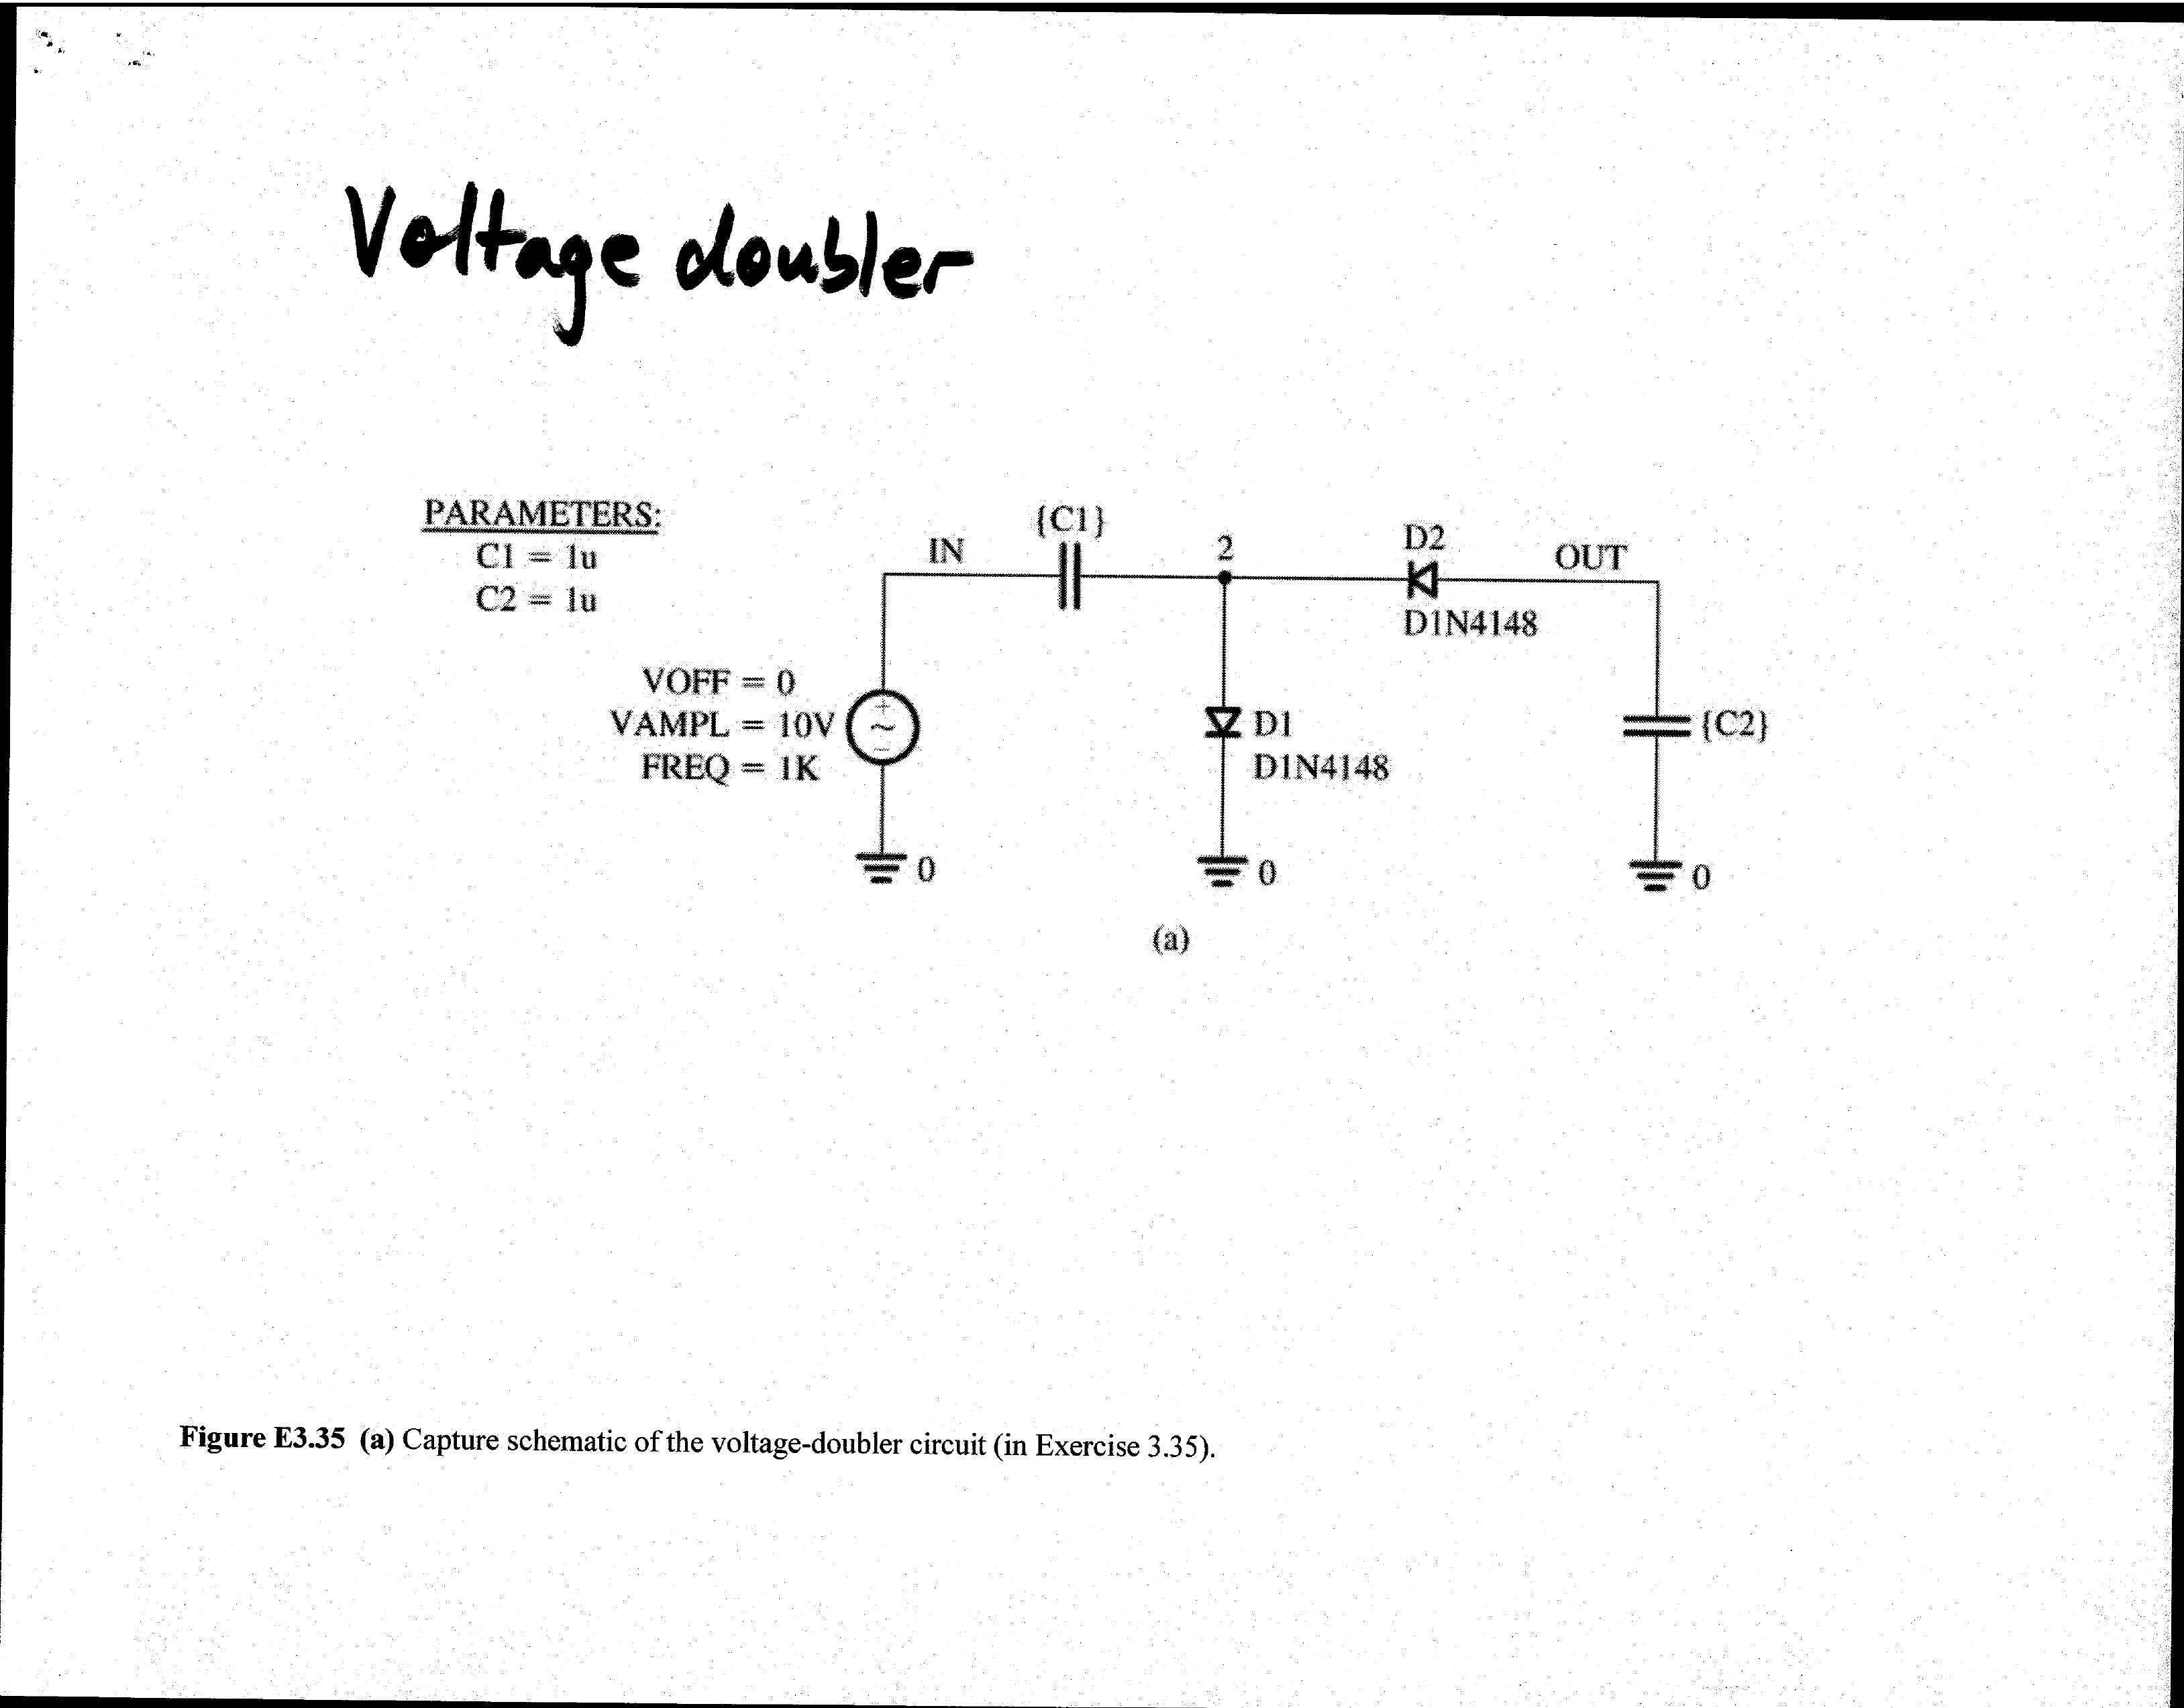 Voltage doubler
PARAMETERS:
C1 = 1u
C2 = 1u
VOFF = 0
VAMPL = 10V
FREQ = 1K
IN
{C1}
2
D2
D1N4148
OUT
D1
D1N4148
{C2}
0
0
0
(a)
Figure E3.35 (a) Capture schematic of the voltage-doubler circuit (in Exercise 3.35).